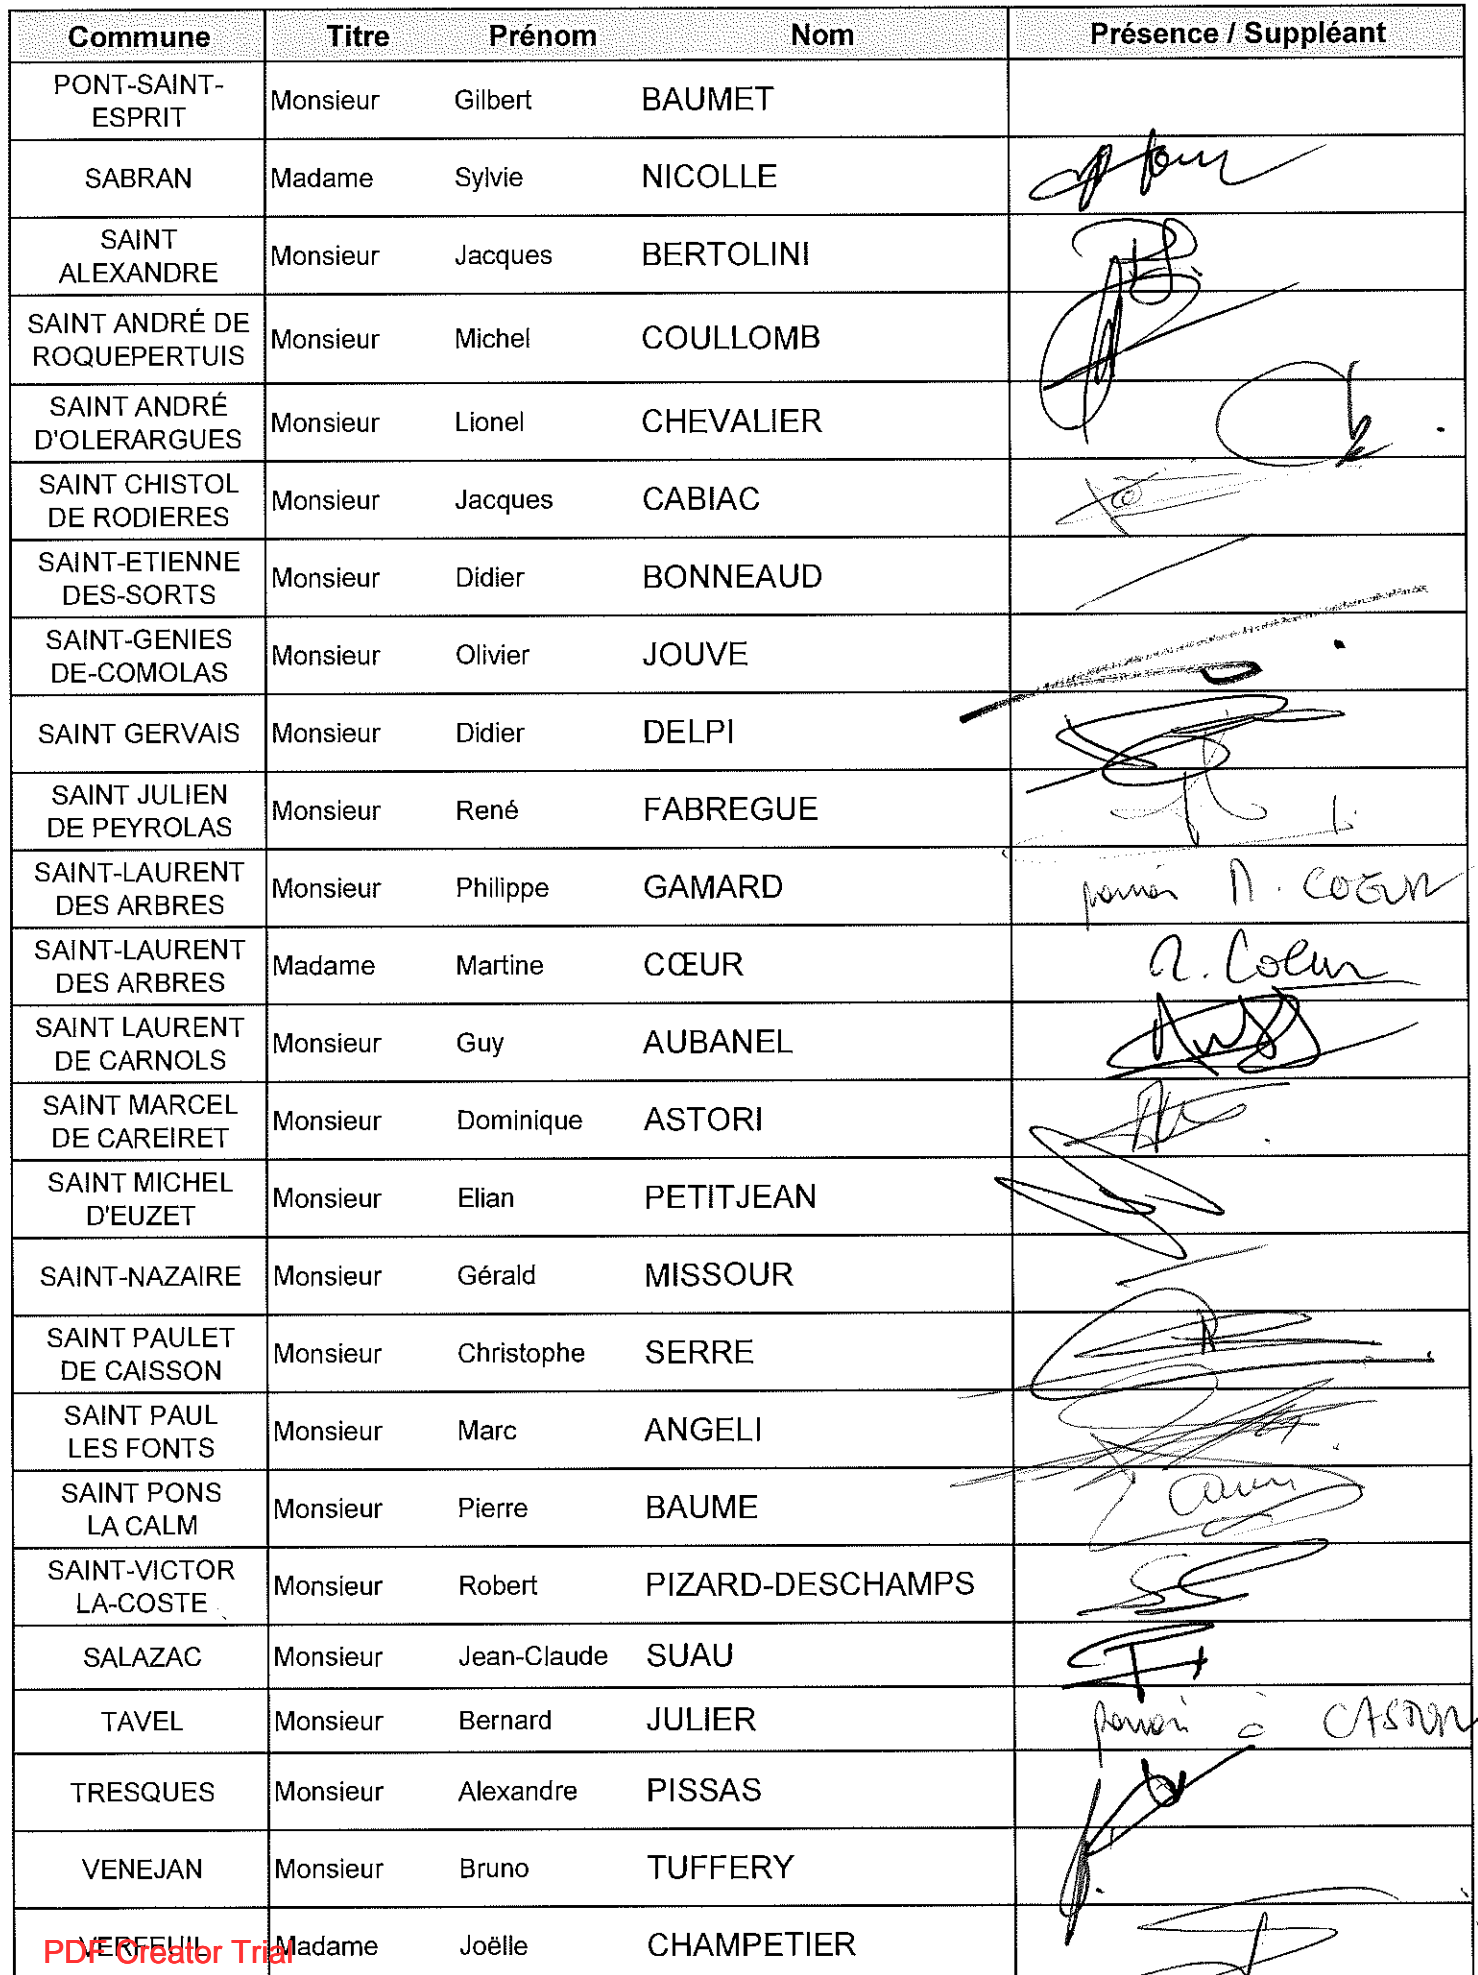 Commune Titre Prénom Nom Présence / Suppléant
PONT-SAINT-
ESPRIT
Monsieur Gilbert BAUMET
SABRAN Madame Sylvie NICOLLE
SAINT
ALEXANDRE
Monsieur Jacques BERTOLINI
SAINT ANDRÉ DE
ROQUEPERTUIS
Monsieur Michel COULLOMB
SAINT ANDRÉ
D'OLERARGUES
Monsieur Lionel CHEVALIER
SAINT CHISTOL
DE RODIERES
Monsieur Jacques CABIAC
SAINT-ETIENNE
DES-SORTS
Monsieur Didier BONNEAUD
SAINT-GENIES
DE-COMOLAS
Monsieur Olivier JOUVE
SAINT GERVAIS Monsieur Didier DELPI
SAINT JULIEN
DE PEYROLAS
Monsieur René FABREGUE
SAINT-LAURENT
DES ARBRES
Monsieur Philippe GAMARD COEUR
SAINT-LAURENT
DES ARBRES
Madame Martine CŒUR Coeur
SAINT LAURENT
DE CARNOLS
Monsieur Guy AUBANEL
SAINT MARCEL
DE CAREIRET
Monsieur Dominique ASTORI
SAINT MICHEL
D'EUZET
Monsieur Elian PETITJEAN
SAINT-NAZAIRE Monsieur Gérald MISSOUR
SAINT PAULET
DE CAISSON
Monsieur Christophe SERRE
SAINT PAUL
LES FONTS
Monsieur Marc ANGELI
SAINT PONS
LA CALM
Monsieur Pierre BAUME
SAINT-VICTOR
LA-COSTE
Monsieur Robert PIZARD-DESCHAMPS
SALAZAC Monsieur Jean-Claude SUAU
TAVEL Monsieur Bernard JULIER à
TRESQUES Monsieur Alexandre PISSAS
VENEJAN Monsieur Bruno TUFFERY
VERFEUIL Madame Joëlle CHAMPETIER
PDF Creator Trial